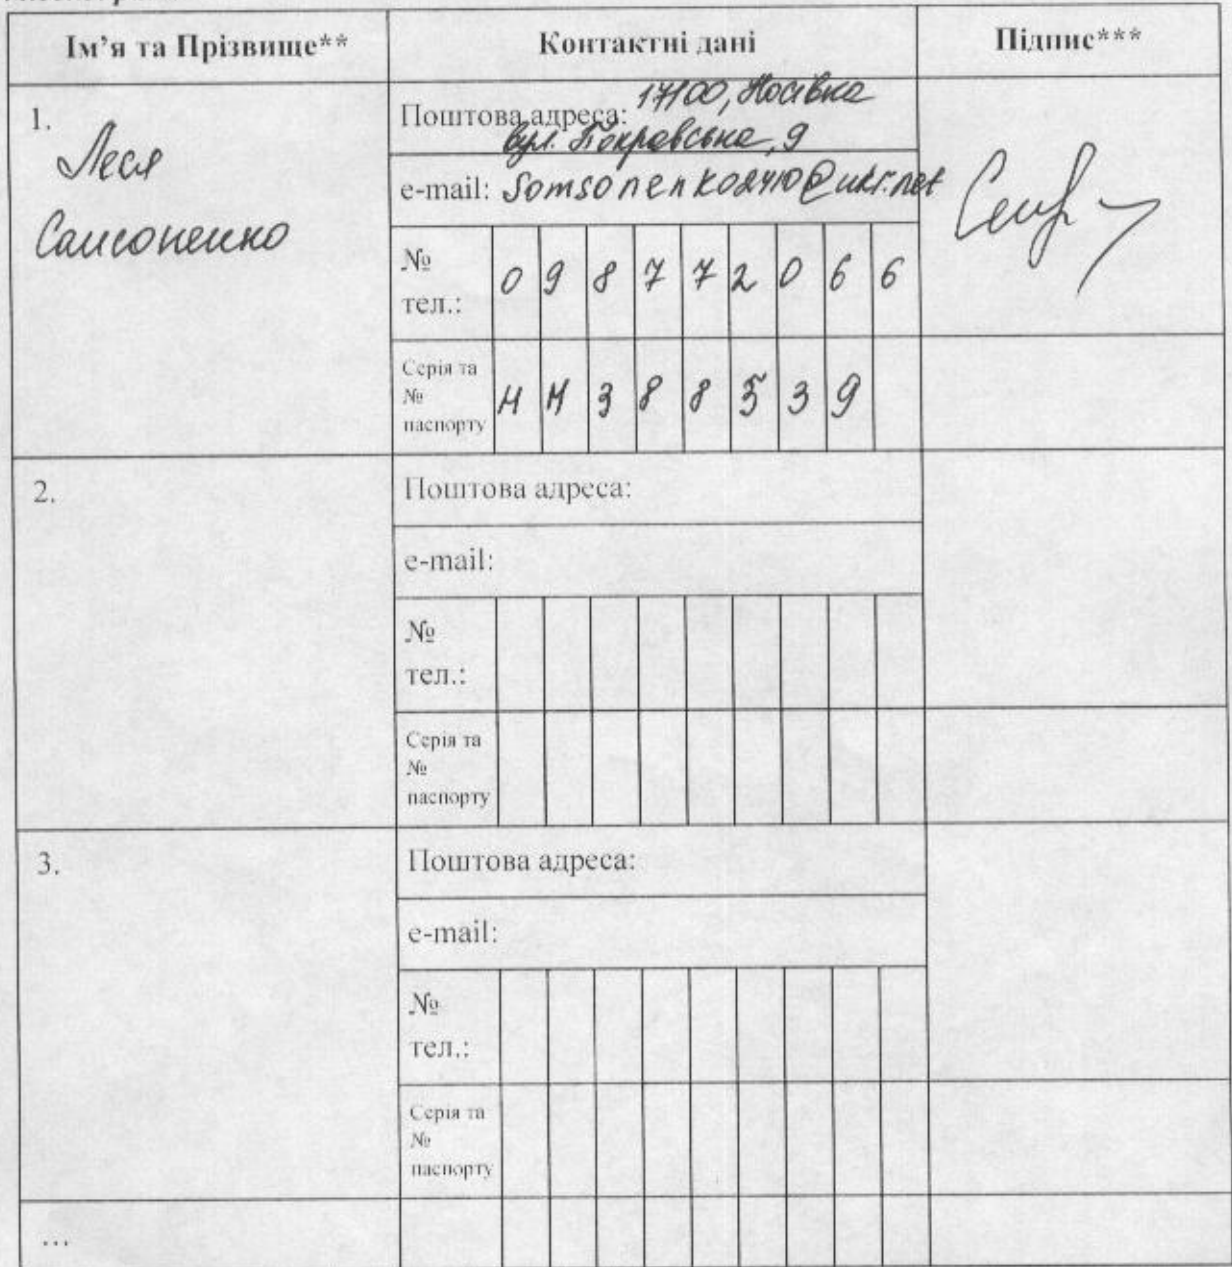 Ім’я та Прізвище** Контактні дані Підпис***
1. Леся Самсоненко
Поштова адреса: 17100, Носівка
вул. Покровська, 9
e-mail: Somsonenko2410@ukr.net
№ тел.: 0 9 8 7 7 2 0 6 6
Серія та № паспорту Н М 3 8 8 5 3 9
2.
Поштова адреса:
e-mail:
№ тел.:
Серія та № паспорту
3.
Поштова адреса:
e-mail:
№ тел.:
Серія та № паспорту
...